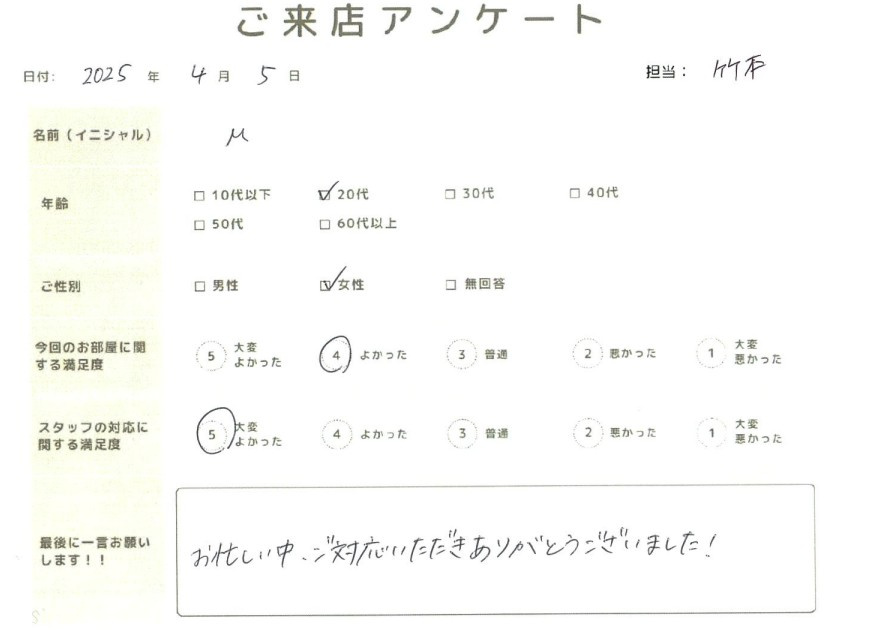 ご来店アンケート
日付: 2025 年 4 月 5 日 担当: 竹下
名前(イニシャル) M
年齢 □ 10代以下 ☑ 20代 □ 30代 □ 40代
□ 50代 □ 60代以上
ご性別 □ 男性 ☑ 女性 □ 無回答
今回のお部屋に関
する満足度
5 大変
よかった
4 よかった
3 普通
2 悪かった
1 大変
悪かった
スタッフの対応に
関する満足度
5 大変
よかった
4 よかった
3 普通
2 悪かった
1 大変
悪かった
最後に一言お願い
します!!
お忙しい中、ご対応いただきありがとうございました!